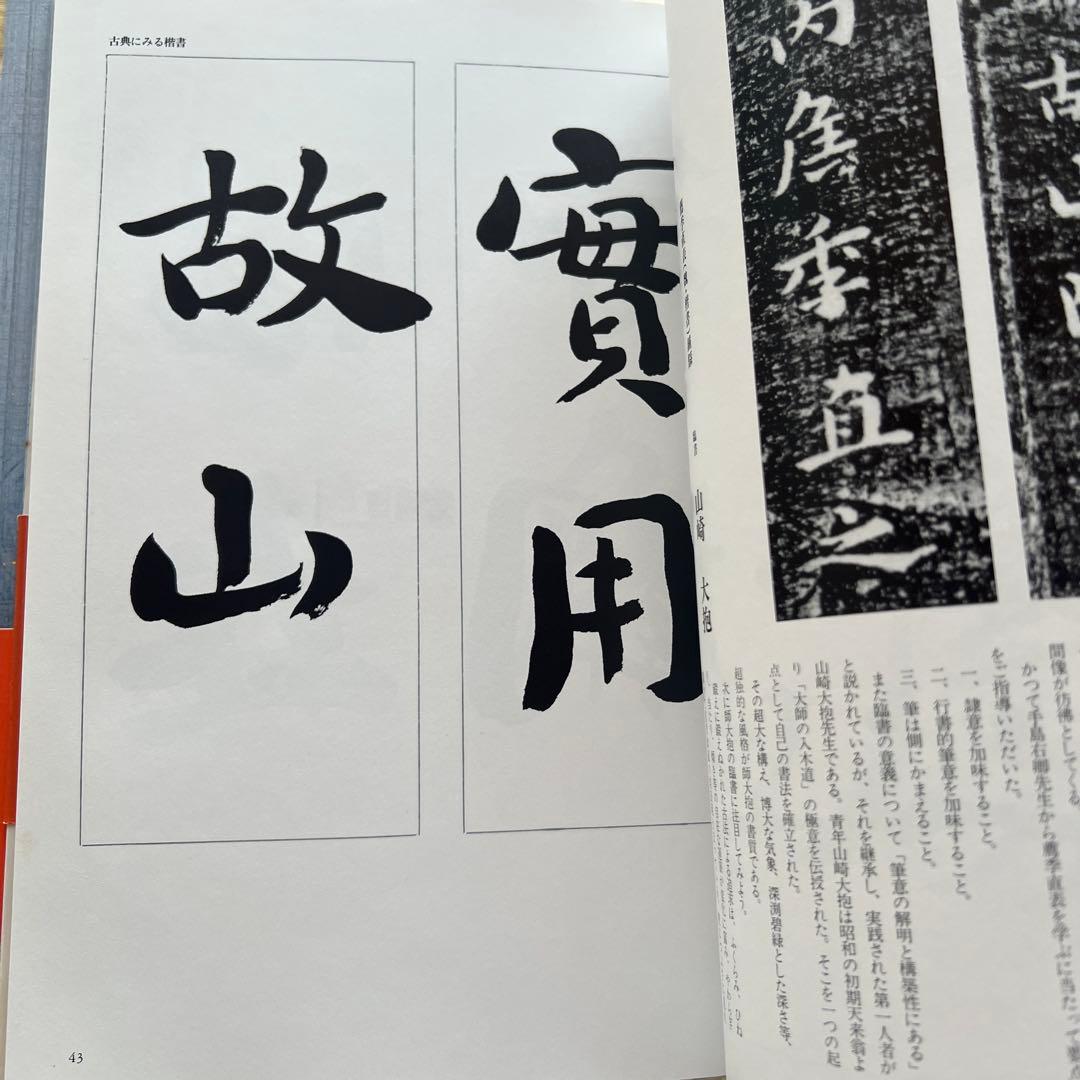 古典にみる楷書
實用
故山
43
内侯季直之
故山
臨書 山崎 大抱
間像が彷彿としてくる
かつて手島石卿先生から薦季直表を学ぶに当たって要点
をご指導いただいた。
一、隷意を加味すること。
二、行書的筆意を加味すること。
三、筆は側にかまえること。
また臨書の意義について「筆意の解明と構築性にある」
と説かれているが、それを継承し、実践された第一人者が
山崎大抱先生である。青年山崎大抱は昭和の初期天来翁よ
り「大師の入木道」の極意を伝授された。そこを一つの起
点として自己の書法を確立された。
その超大な構え、博大な気象、深渕碧緑とした深さ等、
超独的な風格が師大抱の書質である。
次に師大抱の臨書に注目してみよう。
鍛えに鍛えぬかれた古法による起承は、ふくらみ、ひね